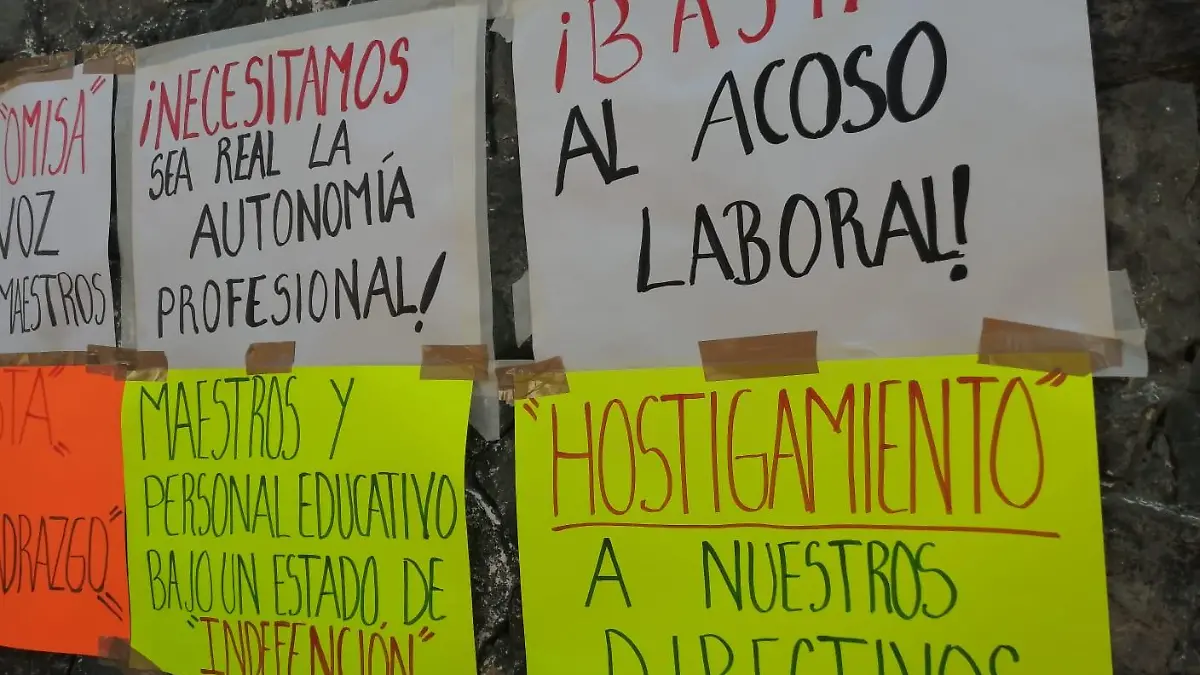 "OMISA"
VOZ
MAESTROS
¡NECESITAMOS
SEA REAL LA
AUTONOMÍA
PROFESIONAL!
¡BAJA
AL ACOSO
LABORAL!
STA"
DRAZGO"
MAESTROS Y
PERSONAL EDUCATIVO
BAJO UN ESTADO DE
"INDEFENCIÓN"
"HOSTIGAMIENTO"
A NUESTROS
DIRECTIVOS